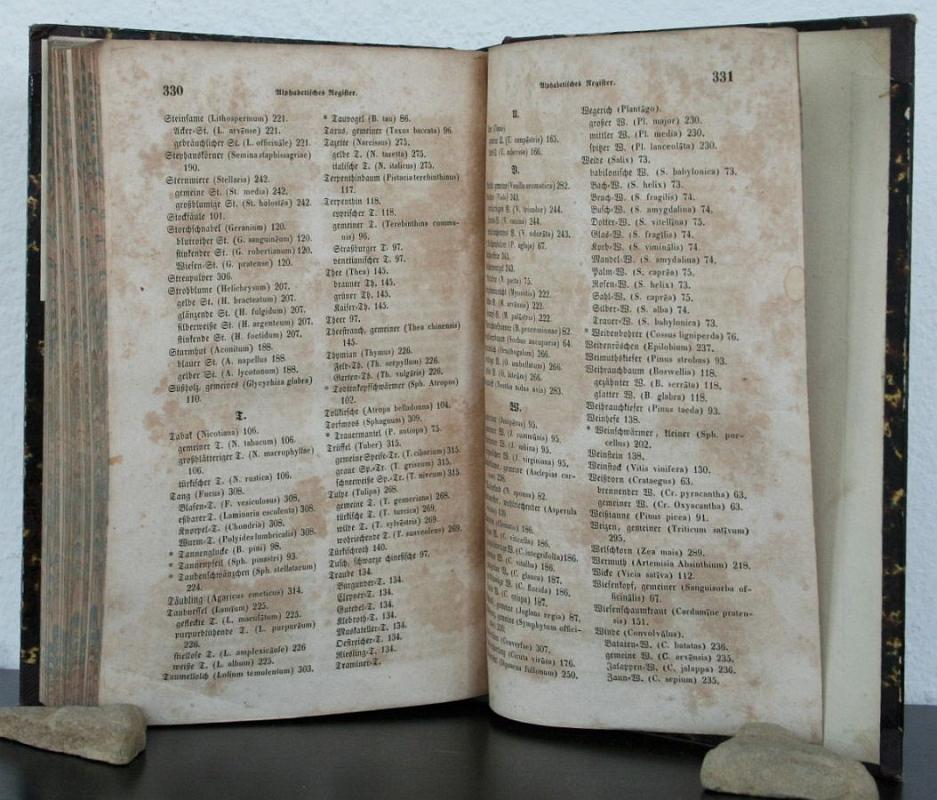 330
Alphabetisches Register.
Steinsame (Lithospermum) 221.
Acker-St. (L. arvense) 221.
gebräuchlicher St. (L. officinale) 221.
Stephanskörner (Semina staphisagriae)
190.
Sternmiere (Stellaria) 242.
gemeine St. (St. media) 242.
großblumige St. (St. holostea) 242.
Stocksäule 101.
Storchschnabel (Geranium) 120.
blutrother St. (G. sanguineum) 120.
stinkender St. (G. robertianum) 120.
Wiesen-St. (G. pratense) 120.
Streupulver 306.
Strohblume (Helichrysum) 207.
gelbe St. (H. bracteatum) 207.
glänzende St. (H. fulgidum) 207.
silberweiße St. (H. argenteum) 207.
stinkende St. (H. foetidum) 207.
Sturmhut (Aconitum) 188.
blauer St. (A. napellus) 188.
gelber St. (A. lycotonum) 188.
Süßholz, gemeines (Glycyrhiza glabra)
110.
T.
Tabak (Nicotiana) 106.
gemeiner T. (N. tabacum) 106.
großblätteriger T. (N. macrophyllos)
106.
türkischer T. (N. rustica) 106.
Tang (Fucus) 308.
Blasen-T. (F. vesiculosus) 308.
eßbarer T. (Laminaria esculenta) 308.
Knorpel-T. (Chondria) 308.
Wurm-T. (Polyides lumbricalis) 308.
* Tannenglucke (B. pini) 98.
* Tannenpfeil (Sph. pinastri) 93.
* Taubenschwänzchen (Sph. stellatarum)
224.
Täubling (Agaricus emeticus) 314.
Taubnessel (Lamium) 225.
gefleckte T. (L. maculatum) 225.
purpurblühende T. (L. purpureum)
226.
stiellose T. (L. amplexicaule) 226
weiße T. (L. album) 225.
Taumellolch (Lolium temulentum) 303.
* Tauvogel (B. tau) 86.
Taxus, gemeiner (Taxus baccata) 96.
Tazette (Narcissus) 275.
gelbe T. (N. tazetta) 275.
italische T. (N. italicus) 275.
Terpenthinbaum (Pistacia terebinthinus)
117.
Terpenthin 118.
cyprischer T. 118.
gemeiner T. (Terebinthina commu-
nis) 96.
Straßburger T. 97.
venetianischer T. 97.
Thee (Thea) 145.
brauner Th. 145.
grüner Th. 145.
Kaiser-Th. 145.
Theer 97.
Theestrauch, gemeiner (Thea chinensis)
145.
Thymian (Thymus) 226.
Feld-Th. (Th. serpyllum) 226.
Garten-Th. (Th. vulgaris) 226.
* Todtenkopfschwärmer (Sph. Atropos)
102.
Tollkirsche (Atropa belladonna) 104.
Torfmoos (Sphagnum) 309.
* Trauermantel (P. antiopa) 75.
Trüffel (Tuber) 315.
gemeine Speise-Tr. (T. cibarium) 315.
graue Sp.-Tr. (T. griseum) 315.
schneeweiße Sp.-Tr. (T. niveum) 315.
Tulpe (Tulipa) 268.
gemeine T. (T. gesneriana) 268.
türkische T. (T. turcica) 269.
wilde T. (T. sylvestris) 269.
wohriechende T. (T. suaveolens) 269.
Türkischroth 140.
Tusch, schwarze chinesische 97.
Traube 134.
Burgunder-T. 134.
Elevner-T. 134.
Gutedel-T. 134.
Klebroth-T. 134.
Muskateller-T. 134.
Oestreicher-T. 134.
Riesling-T. 134.
Traminer-T.
331
Alphabetisches Register.
U.
(U. campestris) 165.
V.
(Vanilla aromatica) 282.
(V. tricolor) 244.
(V. odorata) 243.
(Myosotis) 222.
(B. processionea) 82.
(Sorbus aucuparia) 64.
(Ornithogalum) 266.
W.
(Asclepias cur-
(Asperula
(C. viticella) 186.
(C. integrifolia) 186.
(C. vitalba) 186.
(C. glauca) 187.
(C. florida) 186.
(C. crispa) 187.
(Juglans regia) 87.
(Symphytum offici-
(Confervae) 307.
(Cicuta virosa) 176.
(Dipsacus fullonum) 250.
Wegerich (Plantago).
großer W. (Pl. major) 230.
mittler W. (Pl. media) 230.
spitzer W. (Pl. lanceolata) 230.
Weide (Salix) 73.
babilonische W. (S. babylonica) 73.
Bach-W. (S. helix) 73.
Bruch-W. (S. fragilis) 74.
Busch-W. (S. amygdalina) 74.
Dotter-W. (S. vitellina) 75.
Glas-W. (S. fragilis) 74.
Korb-W. (S. viminalis) 74.
Mandel-W. (S. amydalina) 74.
Palm-W. (S. caprea) 75.
Rosen-W. (S. helix) 73.
Sahl-W. (S. caprea) 75.
Silber-W. (S. alba) 74.
Trauer-W. (S. babylonica) 73.
* Weidenbohrer (Cossus ligniperda) 76.
Weidenröschen (Epilobium) 237.
Weimuthskiefer (Pinus strobus) 93.
Weihrauchbaum (Boswellia) 118.
gezähnter W. (B. serrata) 118.
glatter W. (B. glabra) 118.
Weihrauchkiefer (Pinus taeda) 93.
Weinhefe 138.
* Weinschwärmer, kleiner (Sph. por-
cellus) 202.
Weinstein 138.
Weinstock (Vitis vinifera) 130.
Weißdorn (Crataegus) 63.
brennender W. (Cr. pyracantha) 63.
gemeiner W. (Cr. Oxyacantha) 63.
Weißtanne (Pinus picea) 91.
Weizen, gemeiner (Triticum sativum)
295.
Welschkorn (Zea mais) 289.
Wermuth (Artemisia Absinthium) 218.
Wicke (Vicia sativa) 112.
Wiesenkopf, gemeiner (Sanguisorba of-
ficinalis) 67.
Wiesenschaumkraut (Cardamine praten-
sis) 151.
Winde (Convolvulus).
Bataten-W. (C. batatas) 236.
gemeine W. (C. arvensis) 235.
Jalappen-W. (C. jalappa) 236.
Zaun-W. (C. sepium) 235.